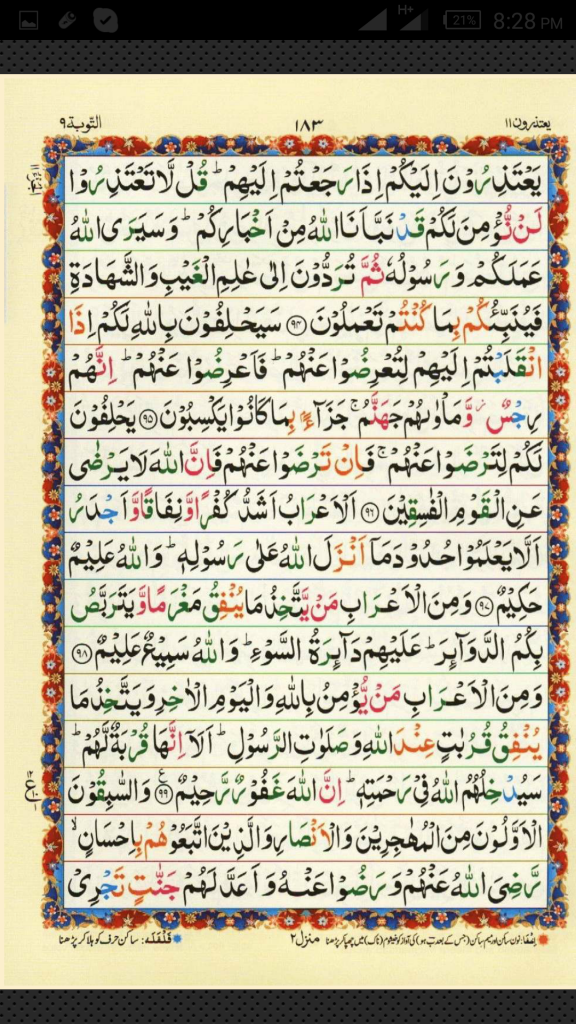 H+ 21% 8:28 PM
يعتذرون ١١ ١٨٣ التوبة ٩
يَعْتَذِرُوْنَ اِلَيْكُمْ اِذَا رَجَعْتُمْ اِلَيْهِمْ ؕ قُلْ لَّا تَعْتَذِرُوْا
لَنْ نُّؤْمِنَ لَكُمْ قَدْ نَبَّاَنَا اللّٰهُ مِنْ اَخْبَارِكُمْ ؕ وَسَيَرَى اللّٰهُ
عَمَلَكُمْ وَرَسُوْلُهٗ ثُمَّ تُرَدُّوْنَ اِلٰى عٰلِمِ الْغَيْبِ وَالشَّهَادَةِ
فَيُنَبِّئُكُمْ بِمَا كُنْتُمْ تَعْمَلُوْنَ ﴿۹۴﴾ سَيَحْلِفُوْنَ بِاللّٰهِ لَكُمْ اِذَا
انْقَلَبْتُمْ اِلَيْهِمْ لِتُعْرِضُوْا عَنْهُمْ ؕ فَاَعْرِضُوْا عَنْهُمْ ؕ اِنَّهُمْ
رِجْسٌ ز وَّمَاْوٰىهُمْ جَهَنَّمُ ۚ جَزَآءًۢ بِمَا كَانُوْا يَكْسِبُوْنَ ﴿۹۵﴾ يَحْلِفُوْنَ
لَكُمْ لِتَرْضَوْا عَنْهُمْ ۚ فَاِنْ تَرْضَوْا عَنْهُمْ فَاِنَّ اللّٰهَ لَا يَرْضٰى
عَنِ الْقَوْمِ الْفٰسِقِيْنَ ﴿۹۶﴾ اَلْاَعْرَابُ اَشَدُّ كُفْرًا وَّنِفَاقًا وَّاَجْدَرُ
اَلَّا يَعْلَمُوْا حُدُوْدَ مَآ اَنْزَلَ اللّٰهُ عَلٰى رَسُوْلِهٖ ؕ وَاللّٰهُ عَلِيْمٌ
حَكِيْمٌ ﴿۹۷﴾ وَمِنَ الْاَعْرَابِ مَنْ يَّتَّخِذُ مَا يُنْفِقُ مَغْرَمًا وَّيَتَرَبَّصُ
بِكُمُ الدَّوَآئِرَ ؕ عَلَيْهِمْ دَآئِرَةُ السَّوْءِ ؕ وَاللّٰهُ سَمِيْعٌ عَلِيْمٌ ﴿۹۸﴾
وَمِنَ الْاَعْرَابِ مَنْ يُّؤْمِنُ بِاللّٰهِ وَالْيَوْمِ الْاٰخِرِ وَيَتَّخِذُ مَا
يُنْفِقُ قُرُبٰتٍ عِنْدَ اللّٰهِ وَصَلَوٰتِ الرَّسُوْلِ ؕ اَلَآ اِنَّهَا قُرْبَةٌ لَّهُمْ ؕ
سَيُدْخِلُهُمُ اللّٰهُ فِيْ رَحْمَتِهٖ ؕ اِنَّ اللّٰهَ غَفُوْرٌ رَّحِيْمٌ ﴿۹۹﴾ ع وَالسّٰبِقُوْنَ
الْاَوَّلُوْنَ مِنَ الْمُهٰجِرِيْنَ وَالْاَنْصَارِ وَالَّذِيْنَ اتَّبَعُوْهُمْ بِاِحْسَانٍ ۙ
رَّضِيَ اللّٰهُ عَنْهُمْ وَرَضُوْا عَنْهُ وَاَعَدَّ لَهُمْ جَنّٰتٍ تَجْرِيْ
اِخفا: نون ساکن اور میم ساکن (جس کے بعد ب ہو) کی آواز کو خیشوم (ناک) میں چھپا کر پڑھنا منزل ۲ قَلْقَلَه: ساکن حرف کو ہلا کر پڑھنا